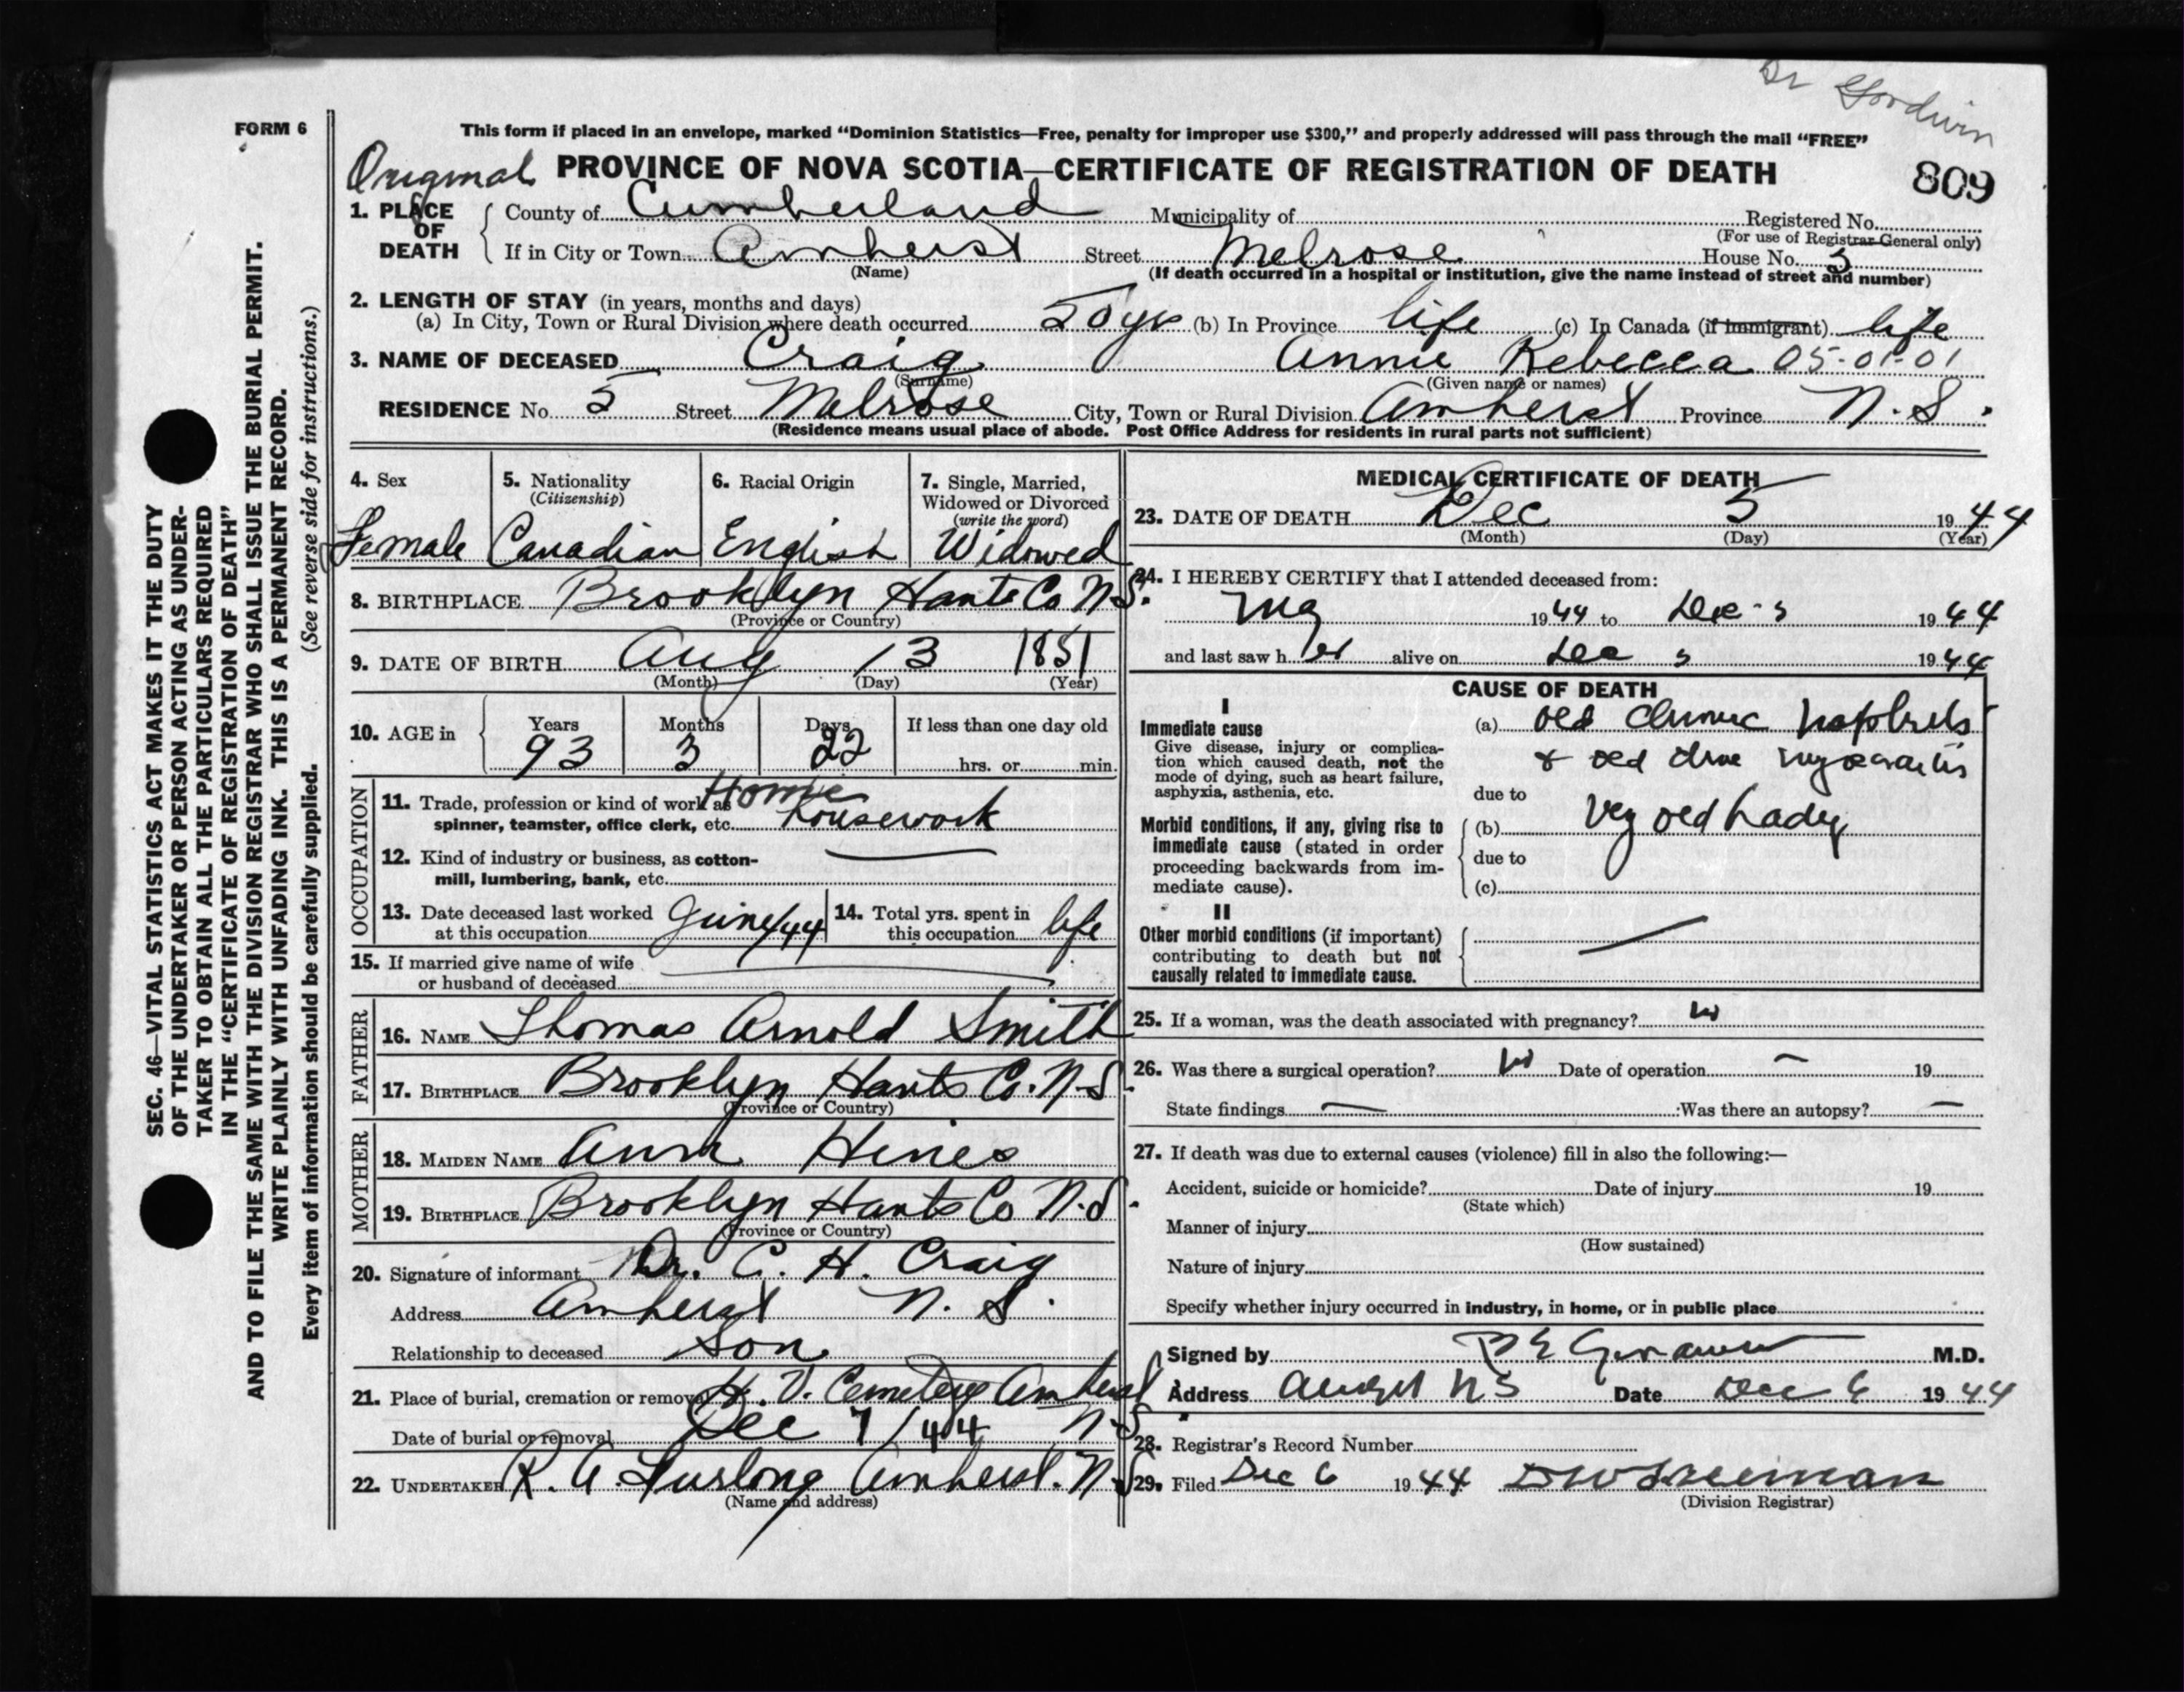 Dr Goodwin
FORM 6
This form if placed in an envelope, marked "Dominion Statistics—Free, penalty for improper use $300," and properly addressed will pass through the mail "FREE"
Original PROVINCE OF NOVA SCOTIA—CERTIFICATE OF REGISTRATION OF DEATH 809
1. PLACE OF DEATH County of Cumberland Municipality of Registered No.
(For use of Registrar General only)
If in City or Town Amherst Street Melrose House No. 5
(Name) (If death occurred in a hospital or institution, give the name instead of street and number)
2. LENGTH OF STAY (in years, months and days)
(a) In City, Town or Rural Division where death occurred 50 yrs (b) In Province life (c) In Canada (if immigrant) life
3. NAME OF DECEASED Craig Annie Rebecca 05-01-01
(Surname) (Given name or names)
RESIDENCE No. 5 Street Melrose City, Town or Rural Division Amherst Province N.S.
(Residence means usual place of abode. Post Office Address for residents in rural parts not sufficient)
4. Sex 5. Nationality (Citizenship) 6. Racial Origin 7. Single, Married, Widowed or Divorced (write the word)
Female Canadian English Widowed
8. BIRTHPLACE Brooklyn Hants Co N.S.
(Province or Country)
9. DATE OF BIRTH Aug 13 1851
(Month) (Day) (Year)
10. AGE in Years Months Days If less than one day old
93 3 22 hrs. or min.
OCCUPATION
11. Trade, profession or kind of work as Home
spinner, teamster, office clerk, etc. housework
12. Kind of industry or business, as cotton-
mill, lumbering, bank, etc.
13. Date deceased last worked at this occupation June/44 14. Total yrs. spent in this occupation life
15. If married give name of wife
or husband of deceased
FATHER
16. NAME Thomas Arnold Smith
17. BIRTHPLACE Brooklyn Hants Co. N.S.
(Province or Country)
MOTHER
18. MAIDEN NAME Ann Hines
19. BIRTHPLACE Brooklyn Hants Co N.S.
(Province or Country)
20. Signature of informant Dr. C. H. Craig
Address Amherst N.S.
Relationship to deceased Son
21. Place of burial, cremation or removal H. V. Cemetery Amherst
Date of burial or removal Dec 7/44 N.S
22. UNDERTAKER R. A. Furlong Amherst. N.S
(Name and address)
MEDICAL CERTIFICATE OF DEATH
23. DATE OF DEATH Dec 5 1944
(Month) (Day) (Year)
24. I HEREBY CERTIFY that I attended deceased from:
1944 to Dec 5 1944
and last saw her alive on Dec 5 1944
CAUSE OF DEATH
I
Immediate cause (a) old chronic nephritis
Give disease, injury or complica-
tion which caused death, not the
mode of dying, such as heart failure,
asphyxia, asthenia, etc.
& old myocarditis
due to
Morbid conditions, if any, giving rise to
immediate cause (stated in order
proceeding backwards from im-
mediate cause).
(b) Very old lady
due to
(c)
II
Other morbid conditions (if important)
contributing to death but not
causally related to immediate cause.
25. If a woman, was the death associated with pregnancy?
26. Was there a surgical operation? Date of operation 19
State findings Was there an autopsy?
27. If death was due to external causes (violence) fill in also the following:—
Accident, suicide or homicide? Date of injury 19
(State which)
Manner of injury
(How sustained)
Nature of injury
Specify whether injury occurred in industry, in home, or in public place
Signed by M.D.
Address Amherst N S Date Dec 6 1944
28. Registrar's Record Number
29. Filed Dec 6 1944
(Division Registrar)
SEC. 46—VITAL STATISTICS ACT MAKES IT THE DUTY
OF THE UNDERTAKER OR PERSON ACTING AS UNDER-
TAKER TO OBTAIN ALL THE PARTICULARS REQUIRED
IN THE "CERTIFICATE OF REGISTRATION OF DEATH"
AND TO FILE THE SAME WITH THE DIVISION REGISTRAR WHO SHALL ISSUE THE BURIAL PERMIT.
WRITE PLAINLY WITH UNFADING INK. THIS IS A PERMANENT RECORD.
Every item of information should be carefully supplied. (See reverse side for instructions.)